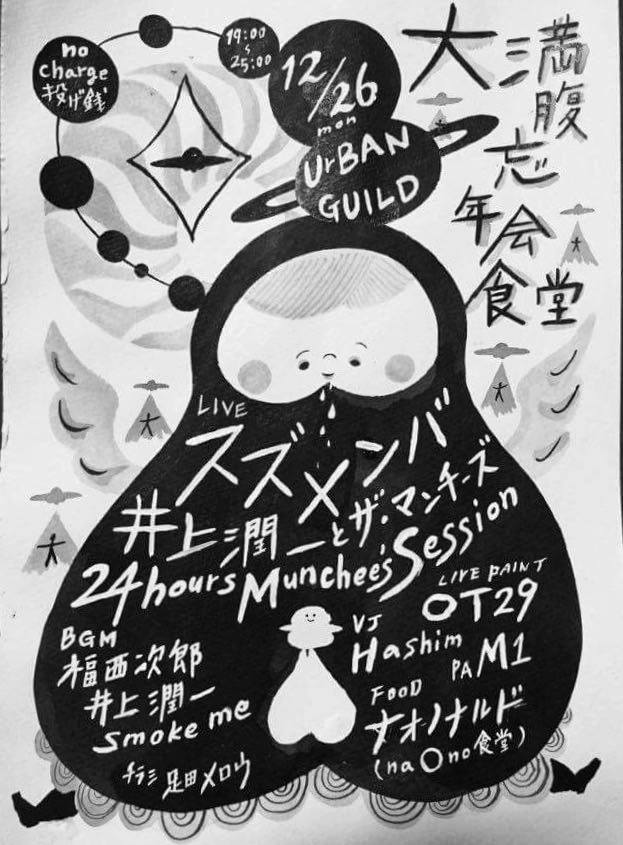 no
charge
投げ銭
19:00
~
25:00
12/26
mon
UrBAN
GUILD
大満腹
忘
年会
食堂
LIVE
スズメンバ
井上潤一とザ・マンチーズ
24hours Munchee's Session
LIVE PAINT
OT29
BGM
福西次郎
井上潤一
smoke me
VJ
Hashim
PA M1
FOOD
ナオノナルド
(naOno食堂)
チラシ 足田メロウ